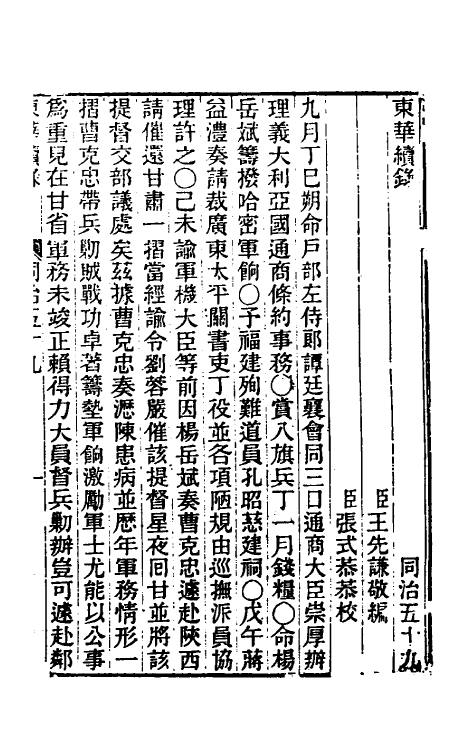 東華續錄
同治五十九
臣王先謙敬編
臣張式恭恭校
九月丁巳朔命戶部左侍郎譚廷襄會同三口通商大臣崇厚辦
理義大利亞國通商條約事務○賞八旗兵丁一月錢糧○命楊
岳斌籌撥哈密軍餉○予福建殉難道員孔昭慈建祠○戊午蔣
益澧奏請裁廣東太平關書吏丁役並各項陋規由巡撫派員協
理許之○己未諭軍機大臣等前因楊岳斌奏曹克忠遽赴陝西
請催還甘肅一摺當經諭令劉蓉嚴催該提督星夜回甘並將該
提督交部議處矣茲據曹克忠奏瀝陳患病並歷年軍務情形一
摺曹克忠帶兵勦賊戰功卓著籌墊軍餉激勵軍士尤能以公事
為重見在甘省軍務未竣正賴得力大員督兵勦辦豈可遽赴鄰
東華續錄
同治五十九
一